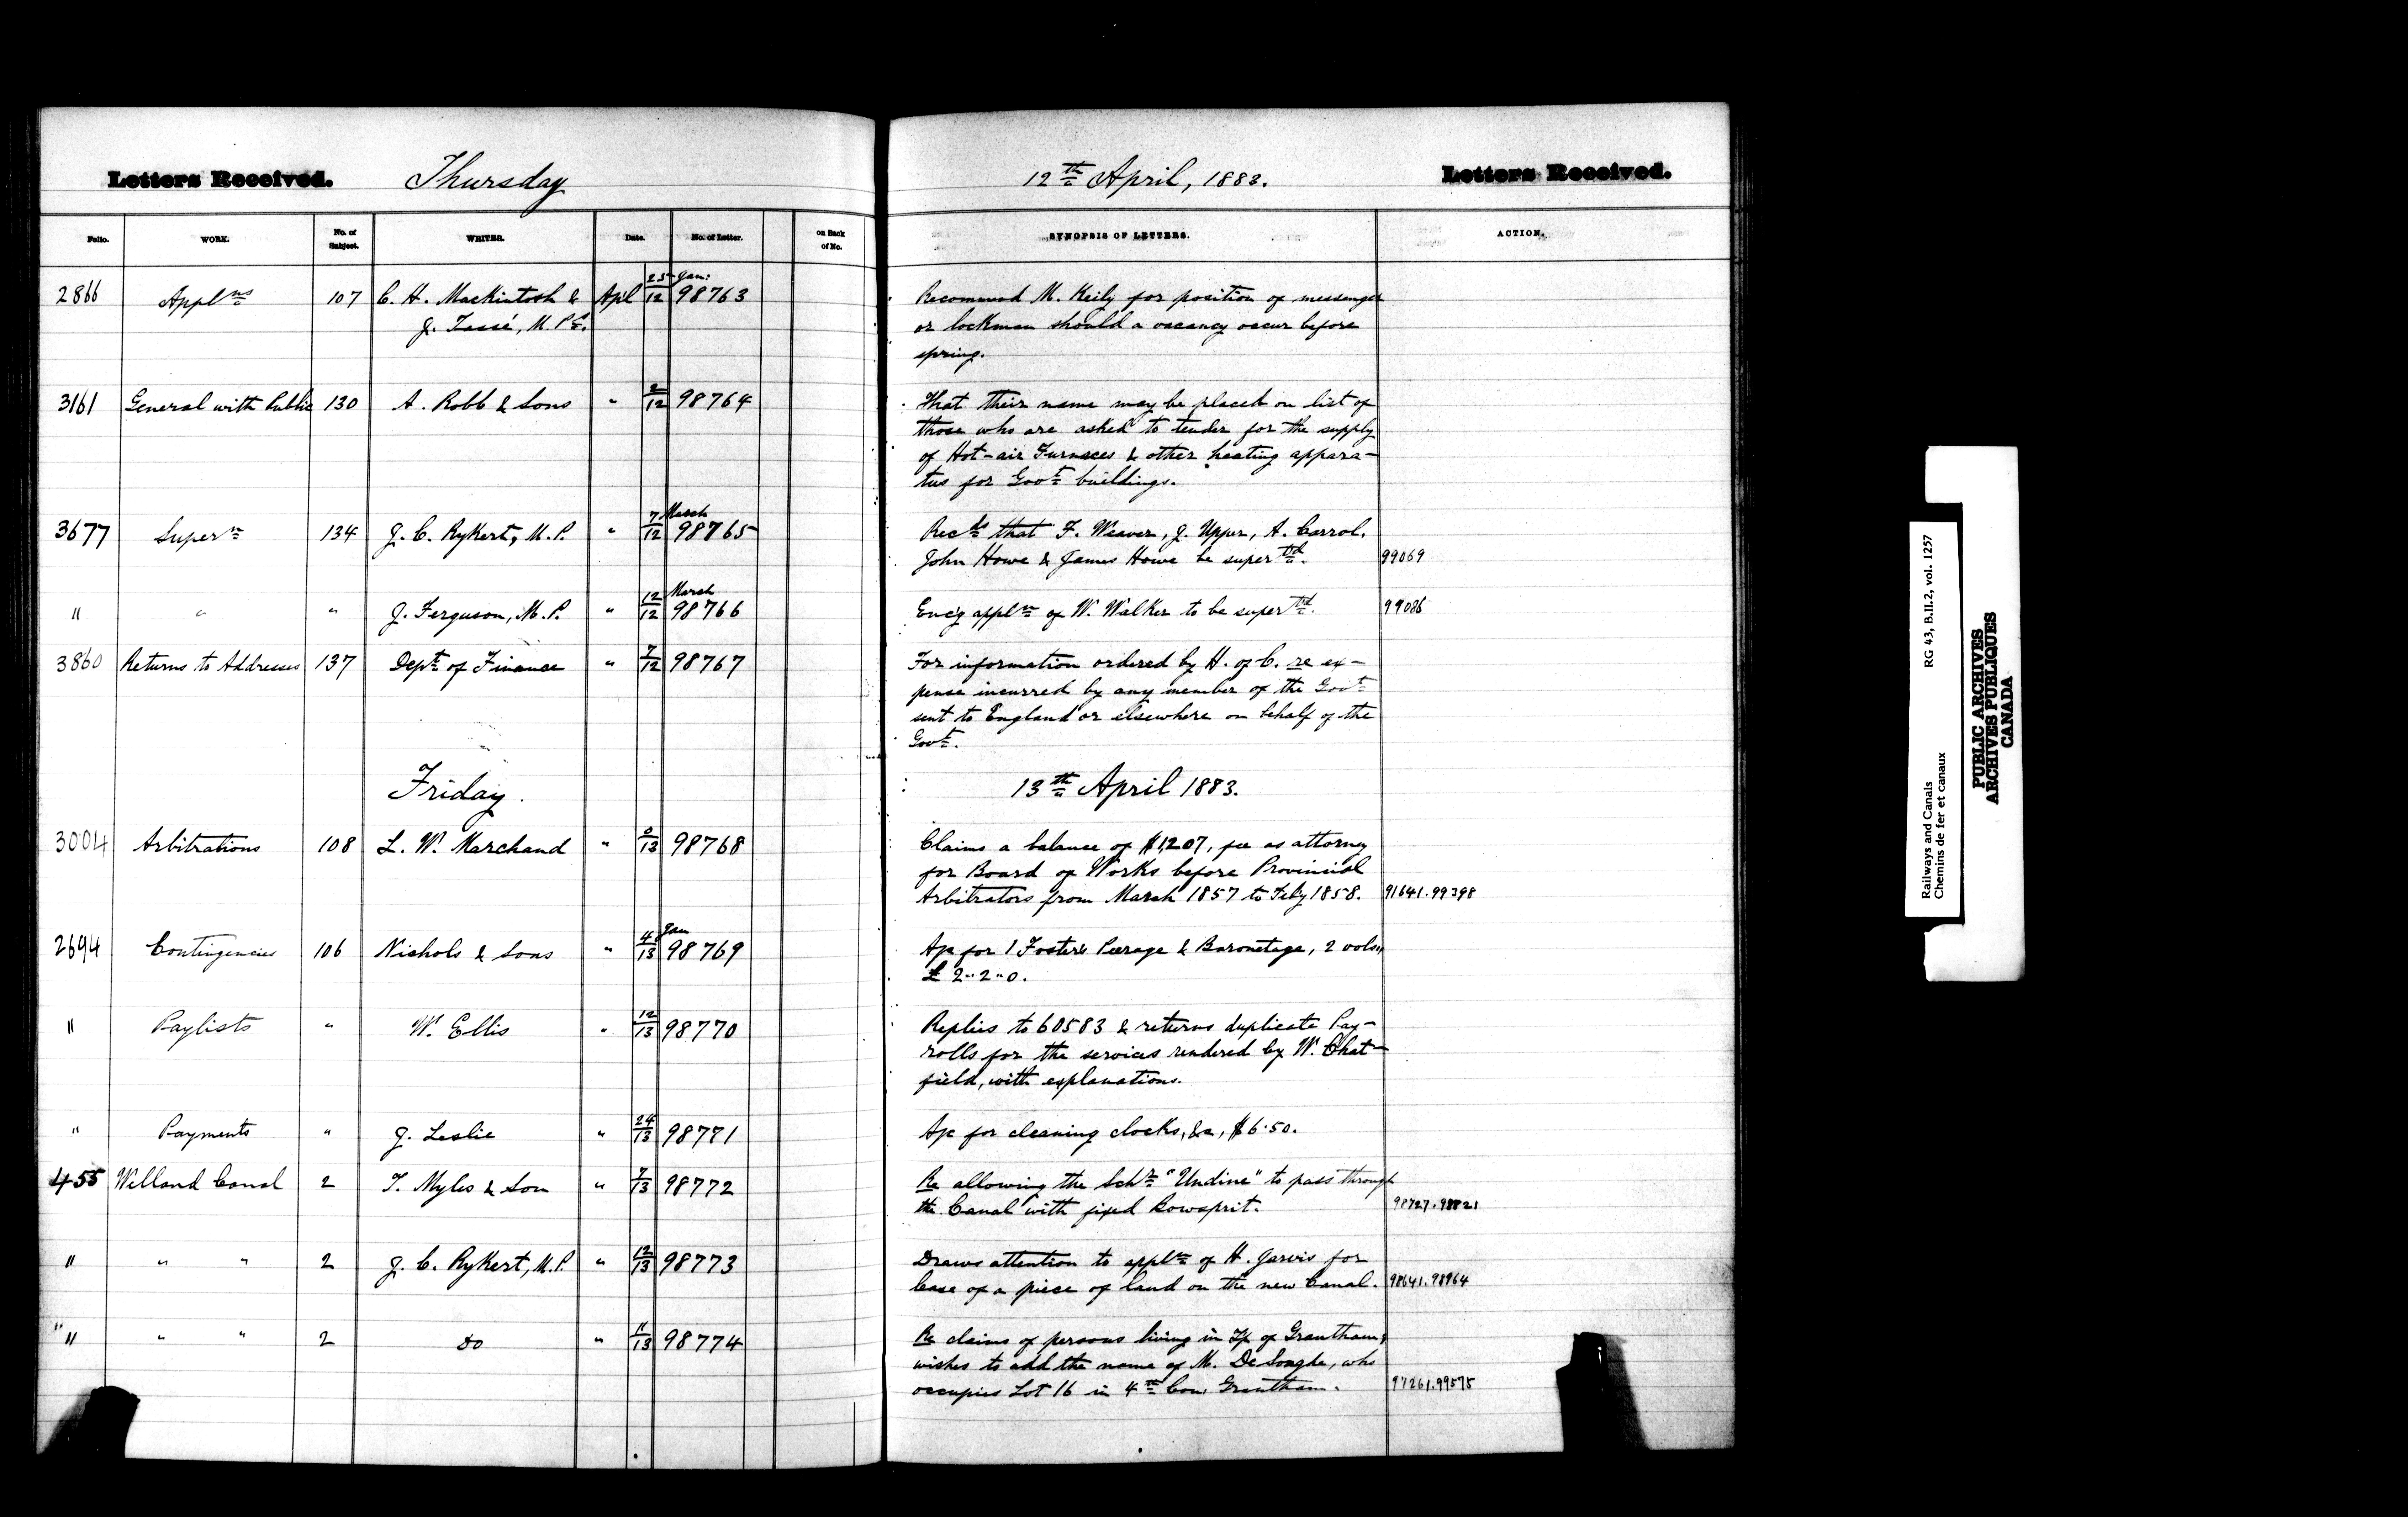 Letters Received. Thursday 12th April, 1883. Letters Received.
Folio. WORK. No. of Subject. WRITER. Date. No. of Letter. on Back of No. SYNOPSIS OF LETTERS. ACTION.
2866 Applns 107 C. H. Mackintosh & Apl 25 Jan: /12 98763 Recommend M. Keily for position of messenger
J. Tassé, M. P.s. or lockman should a vacancy occur before
spring.
3161 General with Public 130 A. Robb & Sons " 2/12 98764 That their name may be placed on list of
those who are asked to tender for the supply
of Hot-air Furnaces & other heating appara-
tus for Govt buildings.
3677 Supern 134 J. C. Rykert, M. P. " 7 March /12 98765 Recds that F. Weaver, J. Upper, A. Carrol,
John Howe & James Howe be supertd. 99069
" " " J. Ferguson, M. P. " 12 March /12 98766 Enc'g appln of W. Walker to be supertd. 99086
3860 Returns to Addresses 137 Dept of Finance " 7/12 98767 For information ordered by H. of C. re ex-
pense incurred by any member of the Govt
sent to England or elsewhere on behalf of the
Govt.
Friday. 13th April 1883.
3004 Arbitrations 108 L. W. Marchand " 0/13 98768 Claims a balance of $1,207, fee as attorney
for Board of Works before Provincial
Arbitrators from March 1857 to Feby 1858. 91641. 99398
2694 Contingencies 106 Nichols & Sons " 4 Jan /13 98769 A/c for 1 Foster's Peerage & Baronetage, 2 vols,
£ 2"2"0.
" Paylists " W. Ellis " 12/13 98770 Replies to 60583 & returns duplicate Pay-
rolls for the services rendered by W. Chat-
field, with explanations.
" Payments " J. Leslie " 24/13 98771 A/c for cleaning clocks, &c, $6.50.
455 Welland Canal 2 T. Myles & Son " 7/13 98772 Re allowing the Schr "Undine" to pass through
the Canal with fixed Bowsprit. 98727. 98821
" " " 2 J. C. Rykert, M. P. " 12/13 98773 Draws attention to appln of H. Jarvis for
lease of a piece of land on the new Canal. 98641. 98964
" " " 2 Do " 11/13 98774 Re claims of persons living in Tp of Grantham,
wishes to add the name of M. DeLonghe, who
occupies Lot 16 in 4th Con. Grantham. 97261. 99575
Railways and Canals RG 43, B.II.2, vol. 1257
Chemins de fer et canaux
PUBLIC ARCHIVES
ARCHIVES PUBLIQUES
CANADA